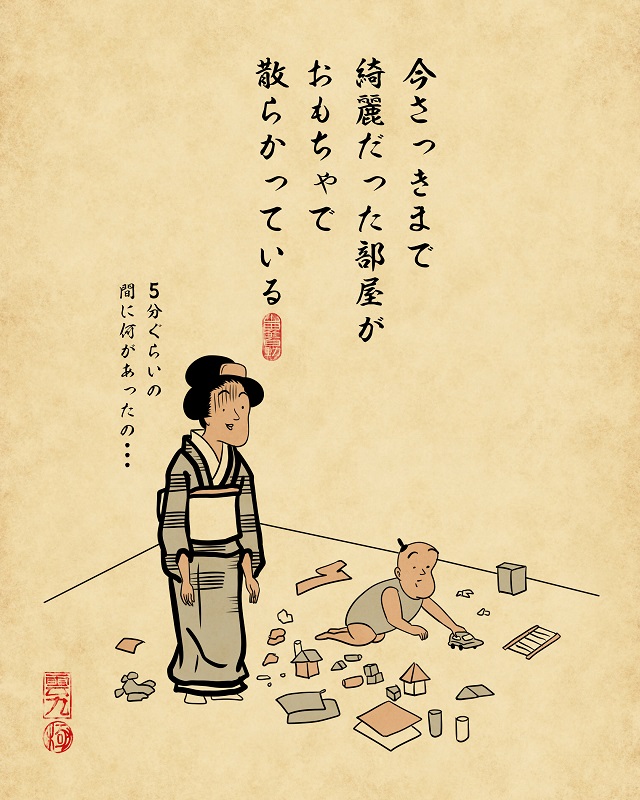 今さっきまで
綺麗だった部屋が
おもちゃで
散らかっている
5分ぐらいの
間に何があったの・・・